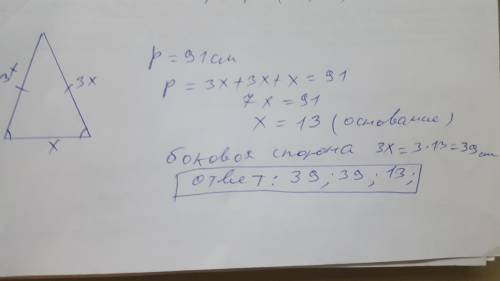 3x
3x
x
P = 91 см
P = 3x+3x+x = 91
7x = 91
x = 13 (основание)
боковая сторона 3x = 3·13 = 39 cm
ответ: 39; 39; 13;